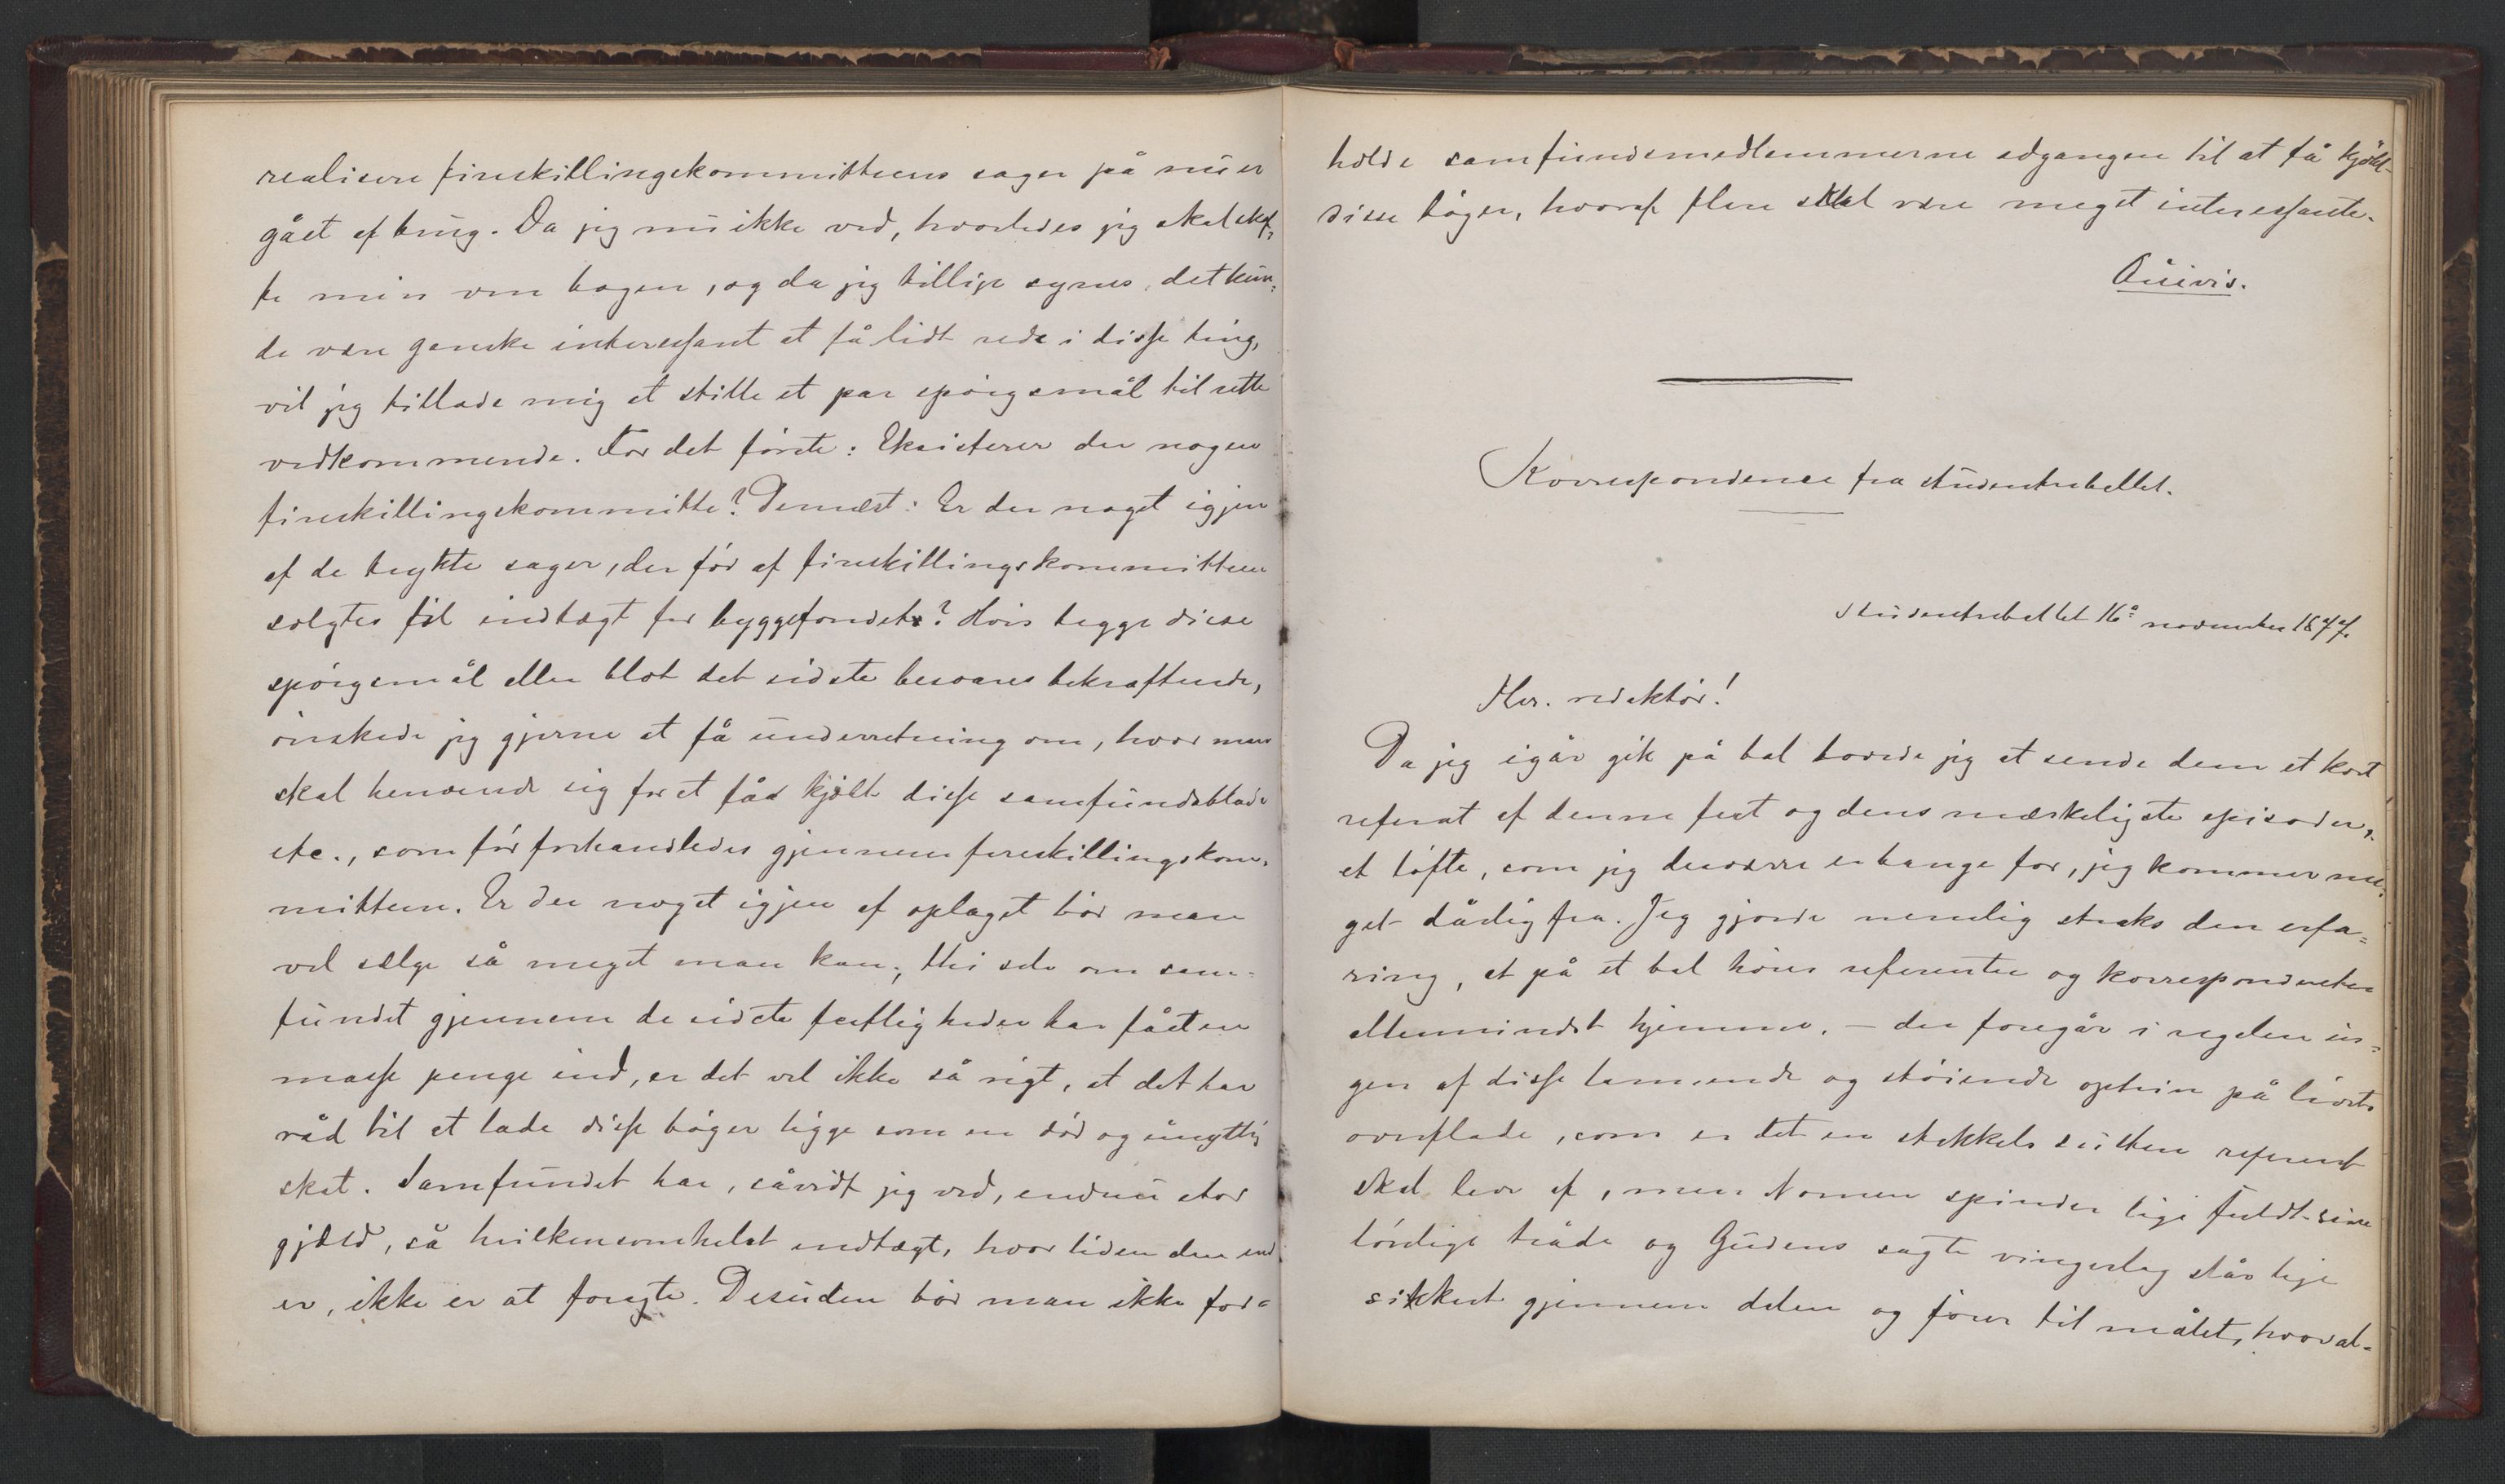 realisere fireskillingskommitteens sager på nu er
gået af brug. Da jeg nu ikke ved, hvorledes jeg skal skaf,
fe min ven bogen, og da jeg tillige synes, det kun=
de være ganske interessant at få lidt rede i disse ting,
vil jeg tillade mig at stille et par spörgsmål til rette
vedkommende. For det förste: Eksisterer der nogen
fireskillingskommitte? Dernæst: Er der noget igjen
af de trykte sager, der för af fireskillingskommitteen
solgtes til indtægt for byggefondet? Hvis begge disse
spörgsmål eller blot det sidste besvares bekræftende,
önskede jeg gjerne at få underretning om, hvor man
skal henvende sig for at få kjöbt disse samfundsblade
etc., som för forhandledes gjennem fireskillingskom=
mitteen. Er der noget igjen af oplaget bör man
vel sælge så meget man kan; thi selv om sam=
fundet gjennem de sidste festligheder har fået en
masse penge ind, er det vel ikke så rigt, at det har
råd til at lade disse böger ligge som en död og unyttig
skat. Samfundet har, såvidt jeg ved, endnu stor
gjæld, så hvilkensomhelst indtægt, hvor liden den end
er, ikke er at foragte. Desuden bör man ikke for=
holde samfundsmedlemmerne adgangen til at få kjöbt
disse böger, hvoraf flere skal være meget interessante.
Quivis.
Korrespondence fra studenterballet.
Studenterballet 16de november 1877.
Hr. redaktör!
Da jeg igår gik på bal lovede jeg at sende dem et kort
referat af denne fest og dens mærkeligste episoder,
et löfte, som jeg desværre er bange for, jeg kommer me=
get dårlig fra. Jeg gjorde nemlig straks den erfa=
ring, at på et bal hörer referenter og korrespondenter
allermindst hjemme. – der foregår i regelen in=
gen af disse larmende og stöiende optrin på livets
overflade, som er det en stakkels sulten referent
skal leve af, men Nornen spinder lige fuldt sine
lönlige tråde og Gudens sagte vingeslag slår lige
sikkert gjennem dalen og förer til målet, hvor al=